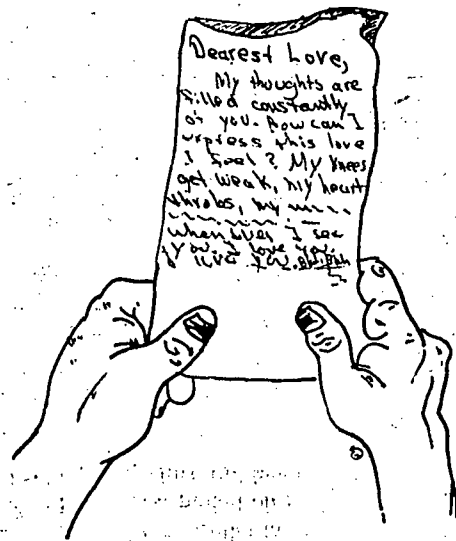 Dearest Love,
My thoughts are
filled constantly
of you. How can I
express this love
I feel? My knees
get weak, my heart
throbs, my
whenever I see
you. I love you.
I love you.